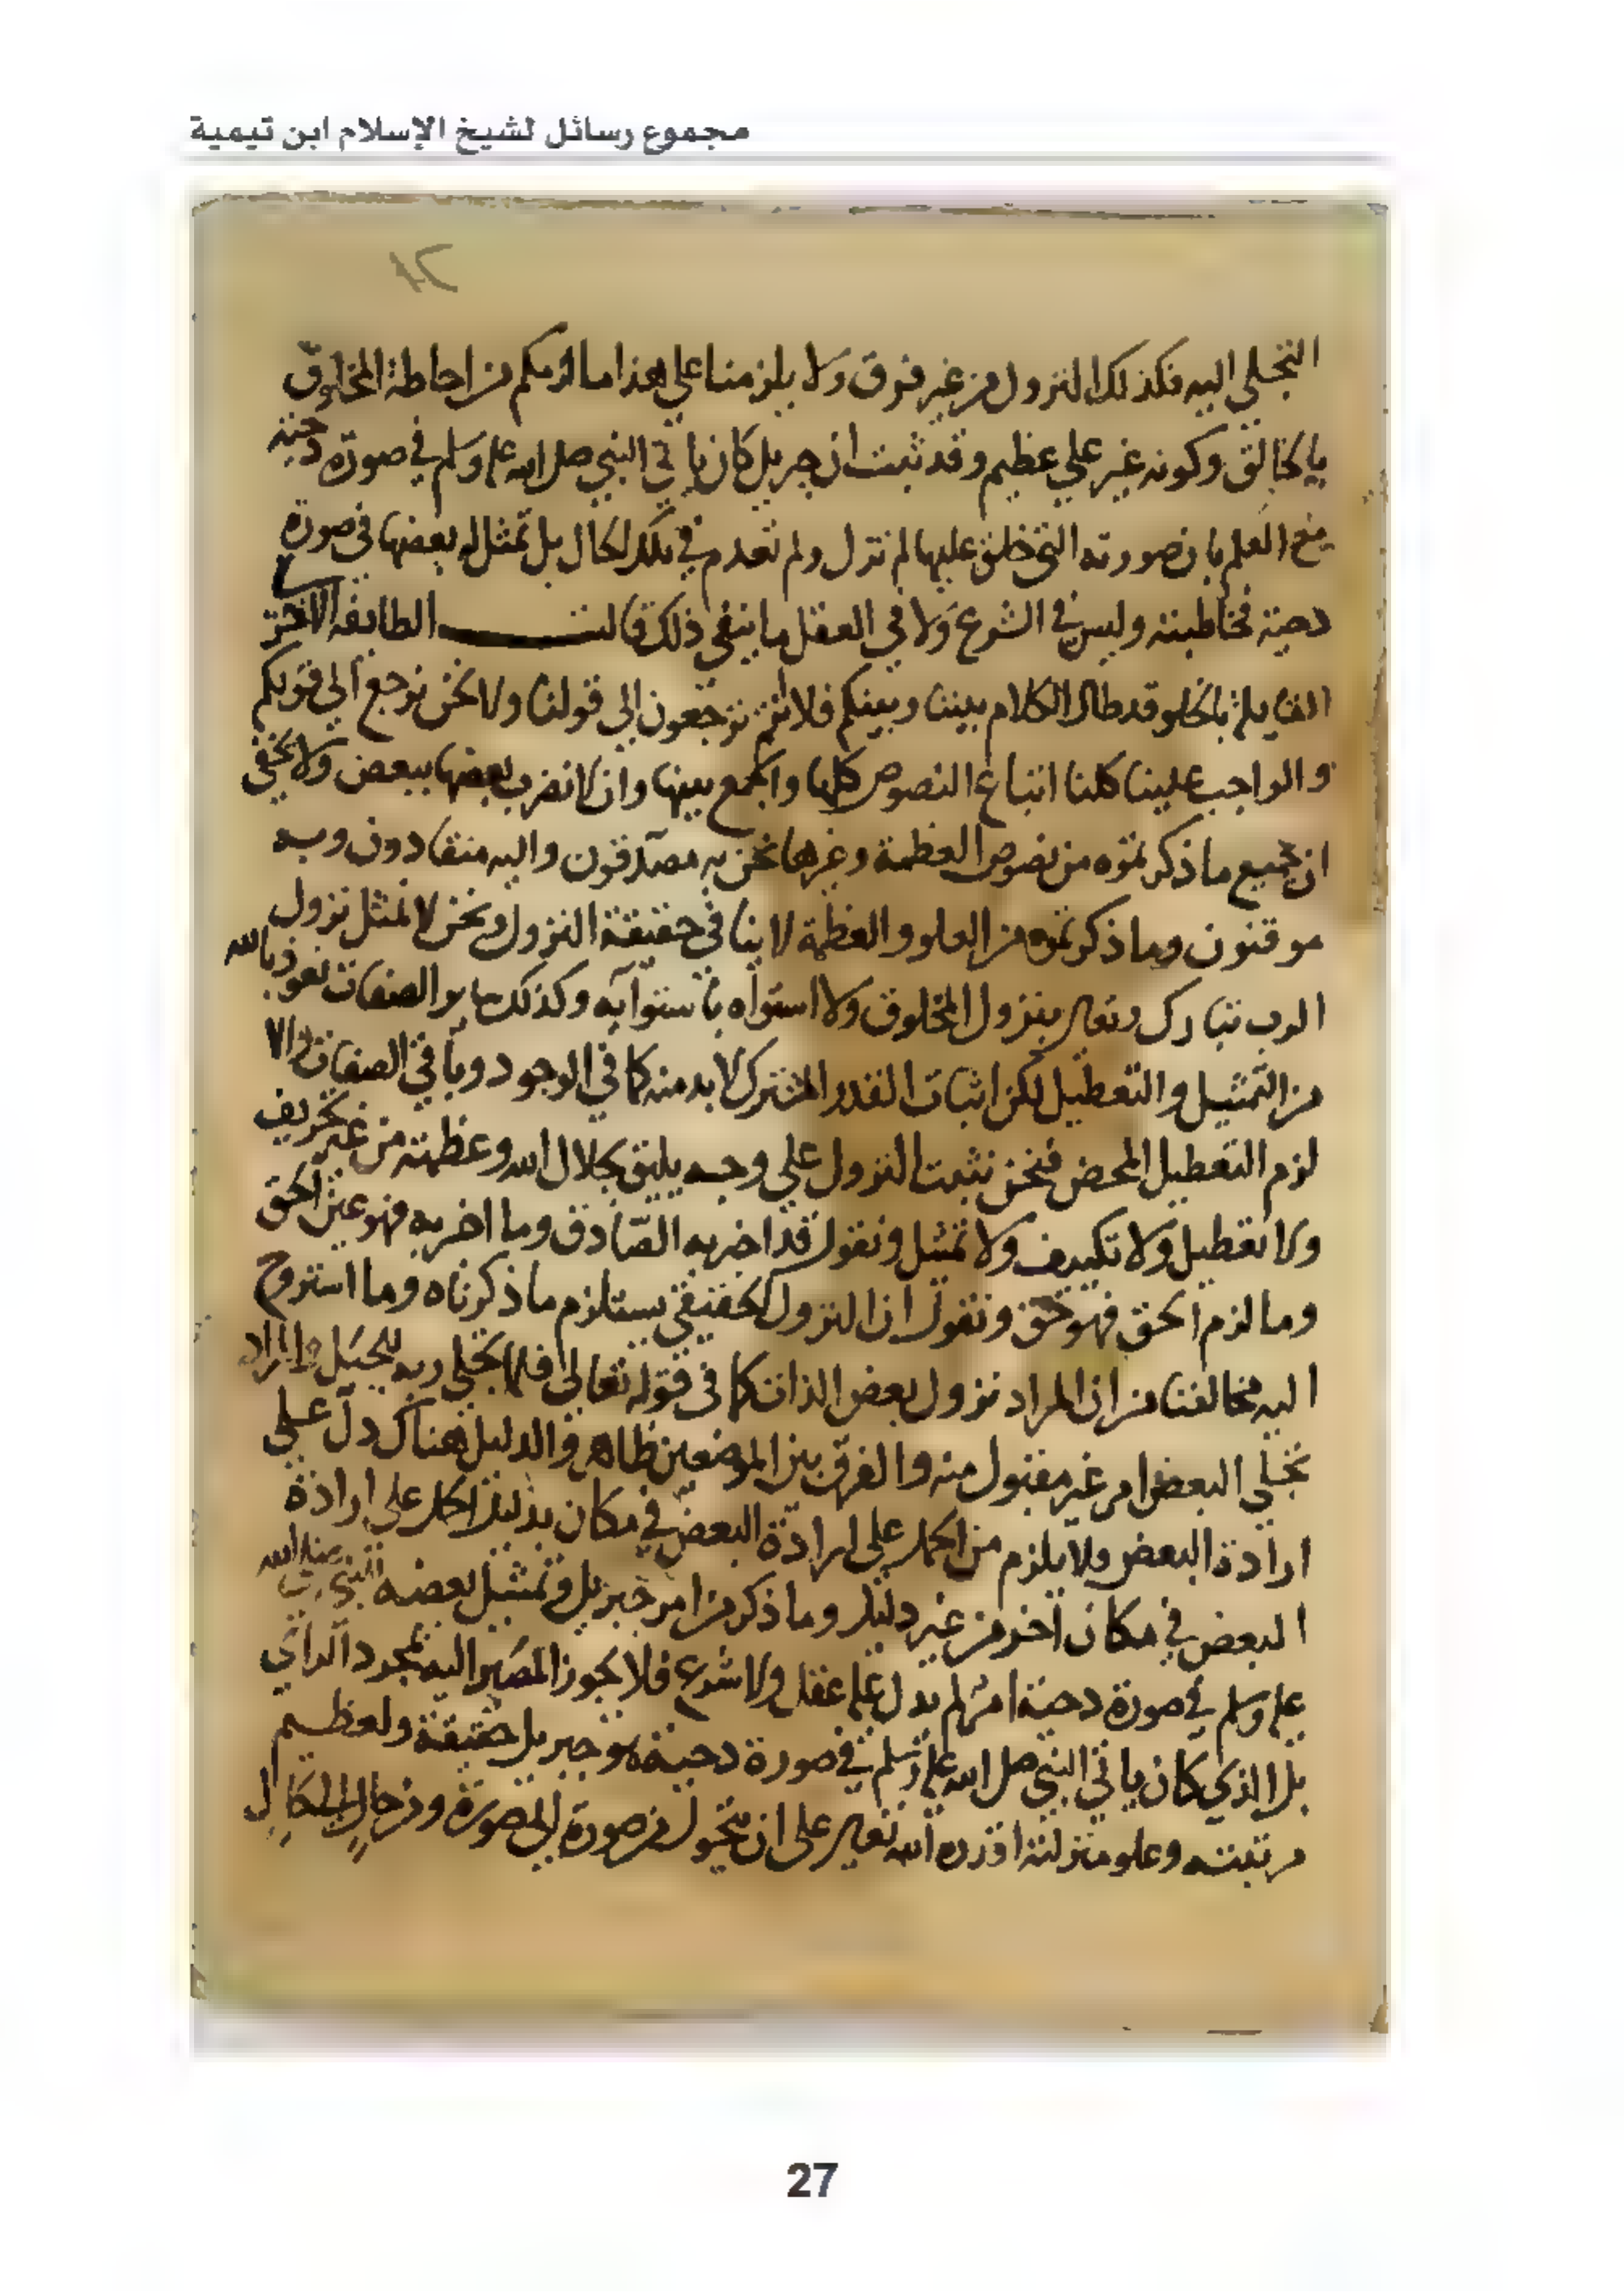 مجموع رسائل لشيخ الإسلام ابن تيمية
٨٢
التجلي اليه فكذلك النزول من غير فرق ولا يلزمنا على هذا ما لزمكم من احاطة المخلوق
بالخالق وكونه غير علي عظيم وقد ثبت ان جبريل كان ياتي النبي صلى الله عليه وسلم في صورة دحية
مع العلم بان صورته التي خلق عليها لم تزل ولم تعدم في تلك الحال بل تمثل له بعضها في صورة
دحية فخاطبته وليس في الشرع ولا في العقل ما ينفي ذلك قالت الطايفة الاخرى
القايلة بالخلو قد طال الكلام بيننا وبينكم فلا انتم ترجعون الى قولنا ولا نحن نرجع الى قولكم
والواجب علينا كلنا اتباع النصوص كلها والجمع بينها وان لا نضرب بعضها ببعض ولا يخفى
ان جميع ما ذكرتموه من نصوص العظمة وغيرها نحن به مصدقون واليه منقادون وبه
موقنون وما ذكرتموه من العلو والعظمة لا ينافي حقيقة النزول ونحن لا نمثل نزول
الرب تبارك وتعالى بنزول المخلوق ولا استواه باستوايه وكذلك ساير الصفات نعوذ بالله
من التمثيل والتعطيل لكن اثبات القدر المشترك لا بد منه كما في الوجود وباقي الصفات والا
لزم التعطيل المحض فنحن نثبت النزول على وجه يليق بجلال الله وعظمته من غير تحريف
ولا تعطيل ولا تكييف ولا تمثيل ونقول قد اخبر به الصادق وما اخبر به فهو عين الحق
وما لزم الحق فهو حق ونقول ان النزول الحقيقي يستلزم ما ذكرناه وما استروح
اليه مخالفنا من ان المراد نزول بعض الذات كما في قوله تعالى فلما تجلى ربه للجبل والمراد
تجلي البعض امر غير مقبول منه والفرق بين الموضعين ظاهر والدليل هناك دل على
ارادة البعض ولا يلزم من الحمل على ارادة البعض في مكان بدليل الحمل على ارادة
البعض في مكان آخر من غير دليل وما ذكر من امر جبريل وتمثيل بعضه للنبي صلى الله
عليه وسلم في صورة دحية امر لم يدل عليه عقل ولا شرع فلا يجوز المصير اليه بمجرد الراي
بل الذي كان ياتي النبي صلى الله عليه وسلم في صورة دحية هو جبريل حقيقة ولعظيم
مرتبته وعلو منزلته اقدره الله تعالى على ان يتحول من صورة الى صورة ومن حال الى حال
27